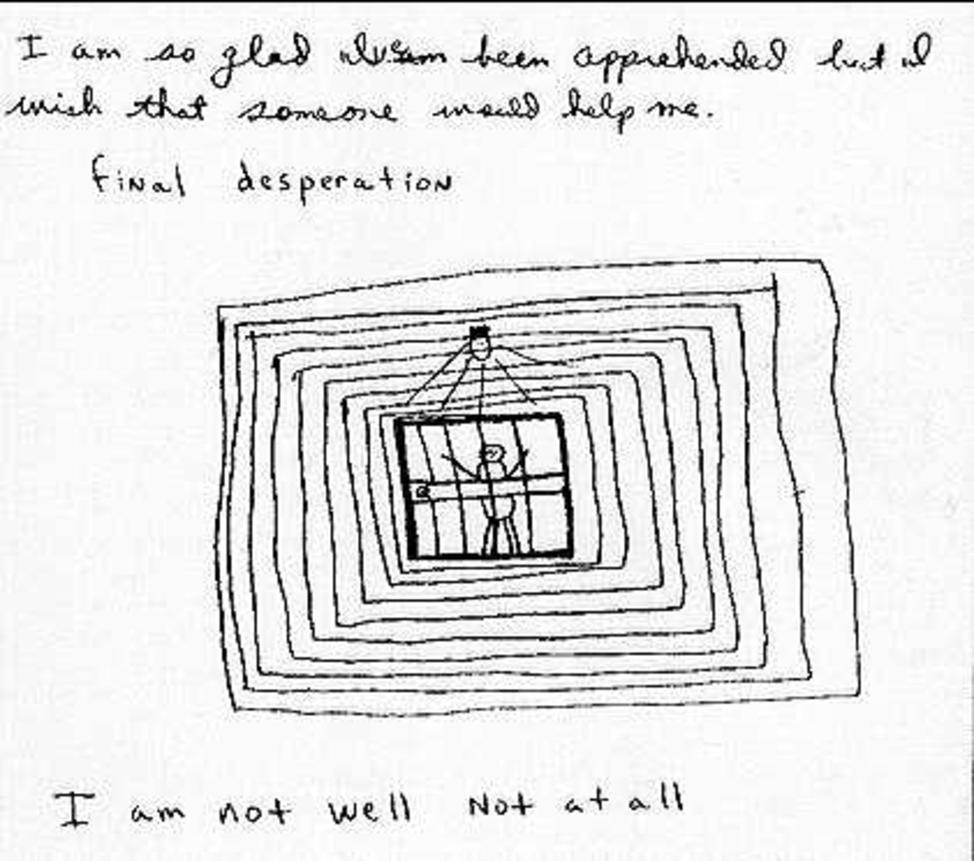 I am so glad been apprehended but I
wish that someone would help me.
final desperation
I am not well Not at all